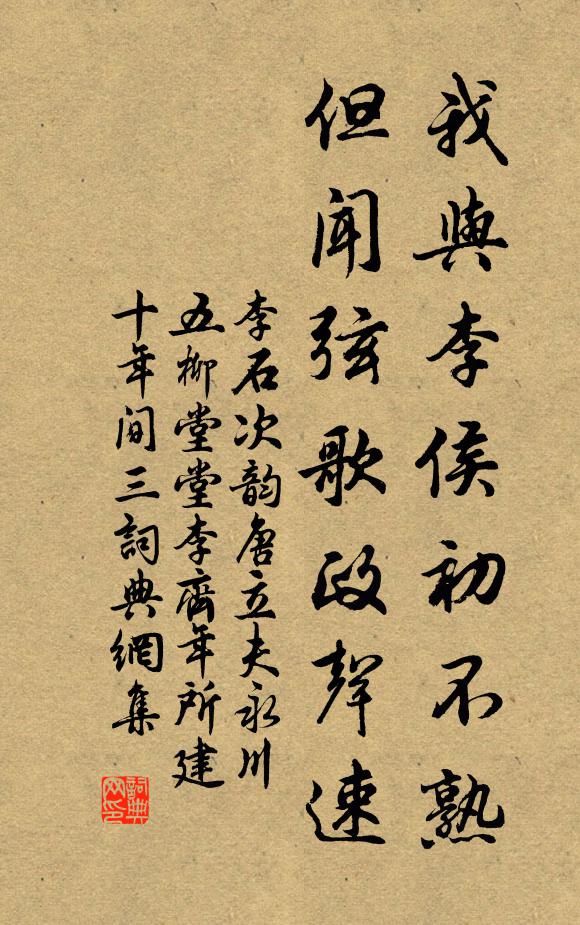 我與李侯初不熟
但聞弦歌政聲速
李石次韵唐立夫永川
五柳堂堂李齊年所建
十年間三詞典網集
詞典网印